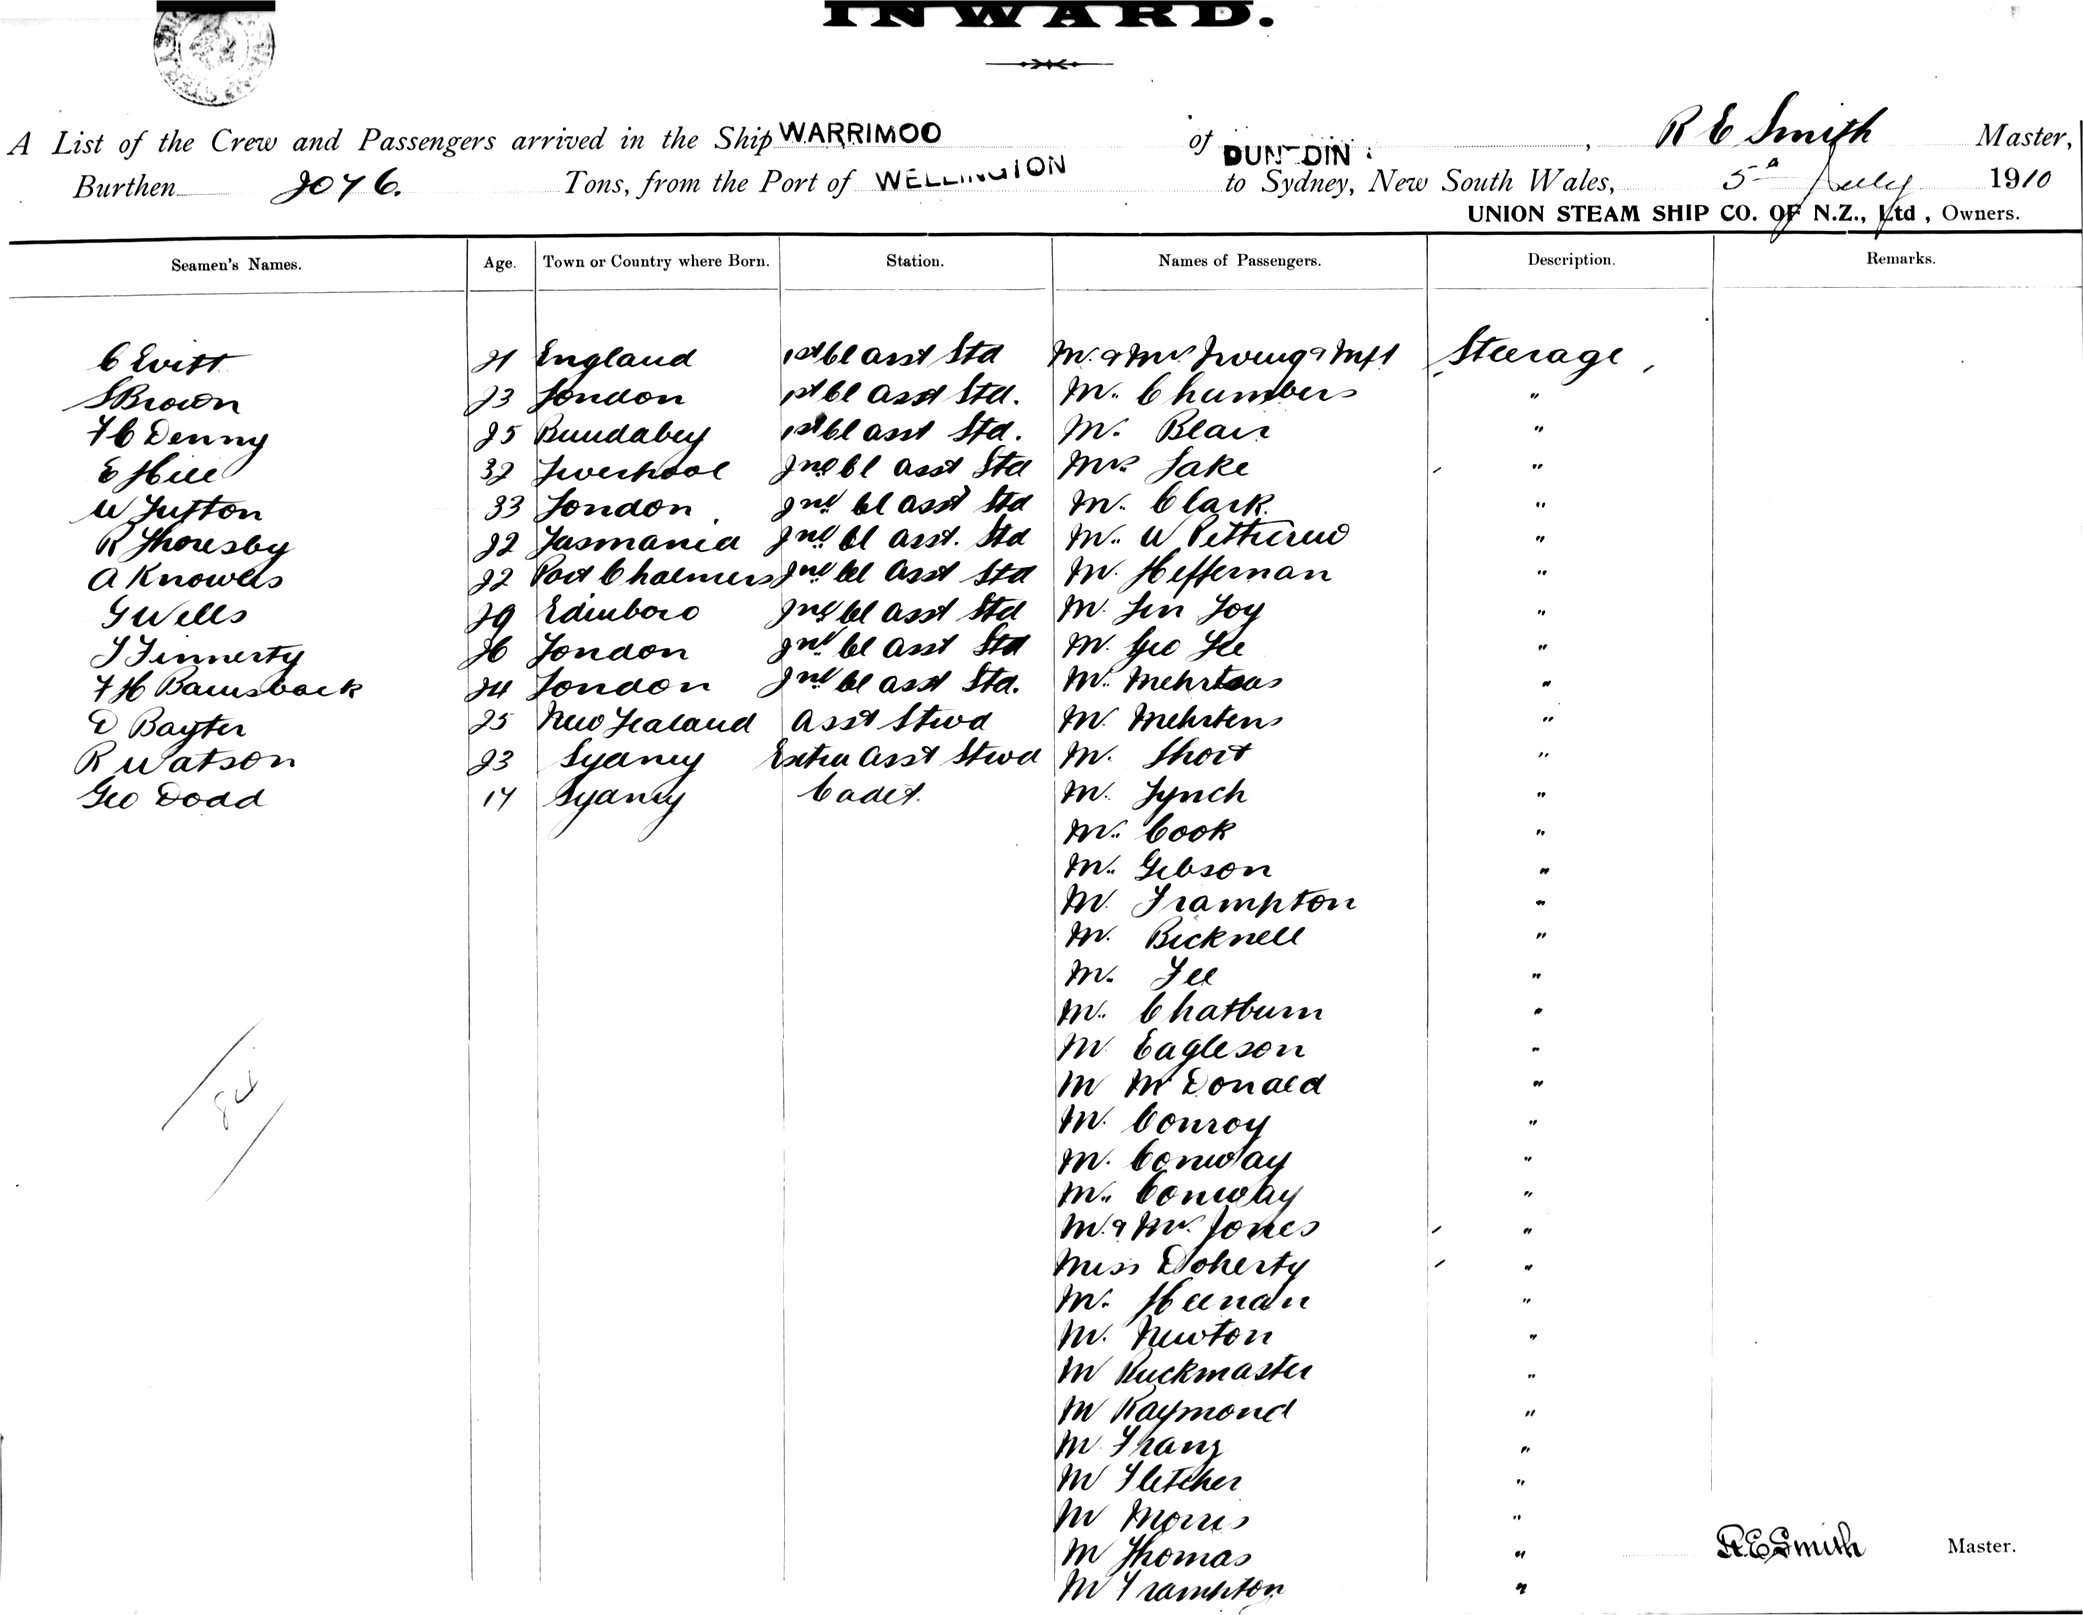 INWARD.
A List of the Crew and Passengers arrived in the Ship WARRIMOO of DUNEDIN, R E Smith Master,
Burthen 2076. Tons, from the Port of WELLINGTON to Sydney, New South Wales, 5th July 1910
UNION STEAM SHIP CO. OF N.Z., Ltd, Owners.
Seamen's Names. Age. Town or Country where Born. Station. Names of Passengers. Description. Remarks.
C Evitt 21 England 1st cl asst Std Mr & Mrs Irving & Inft Steerage
S Brown 23 London 1st cl asst Std. Mr. Chambers "
F C Denny 25 Bundaberg 1st cl asst Std. Mr. Blair "
E Hill 32 Liverpool 2nd cl asst Std Mrs Lake "
W Tutton 33 London 2nd cl asst Std Mr. Clark. "
R Thoresby 22 Tasmania 2nd cl asst. Std Mr. W Pettigrew "
A Knowles 22 Port Chalmers 2nd cl asst Std Mr. Heffernan "
G Wells 29 Edinboro 2nd cl asst Std Mr. "
T Finnerty 26 London 2nd cl asst Std Mr. Geo Lee "
F H 24 London 2nd cl asst Std. Mr. Mehrtens "
D Baxter 25 New Zealand asst Stwd Mr. Mehrtens "
R Watson 23 Sydney Extra asst Stwd Mr. Short "
Geo Dodd 17 Sydney Cadet. Mr. Lynch "
Mr. Cook "
Mr. Gibson "
Mr. Frampton "
Mr. Bicknell "
Mr. "
Mr. Chatburn "
Mr Eagleson "
Mr McDonald "
Mr. Conroy "
Mr. Conway "
Mr. Conway "
Mr. & Mrs. Jones "
Miss Doherty "
Mr. Heenan "
Mr. Newton "
Mr Buckmaster "
Mr Raymond "
Mr Franz "
Mr Fletcher "
Mr Morris "
Mr Thomas "
Mr Frampton "
R.E.Smith Master.